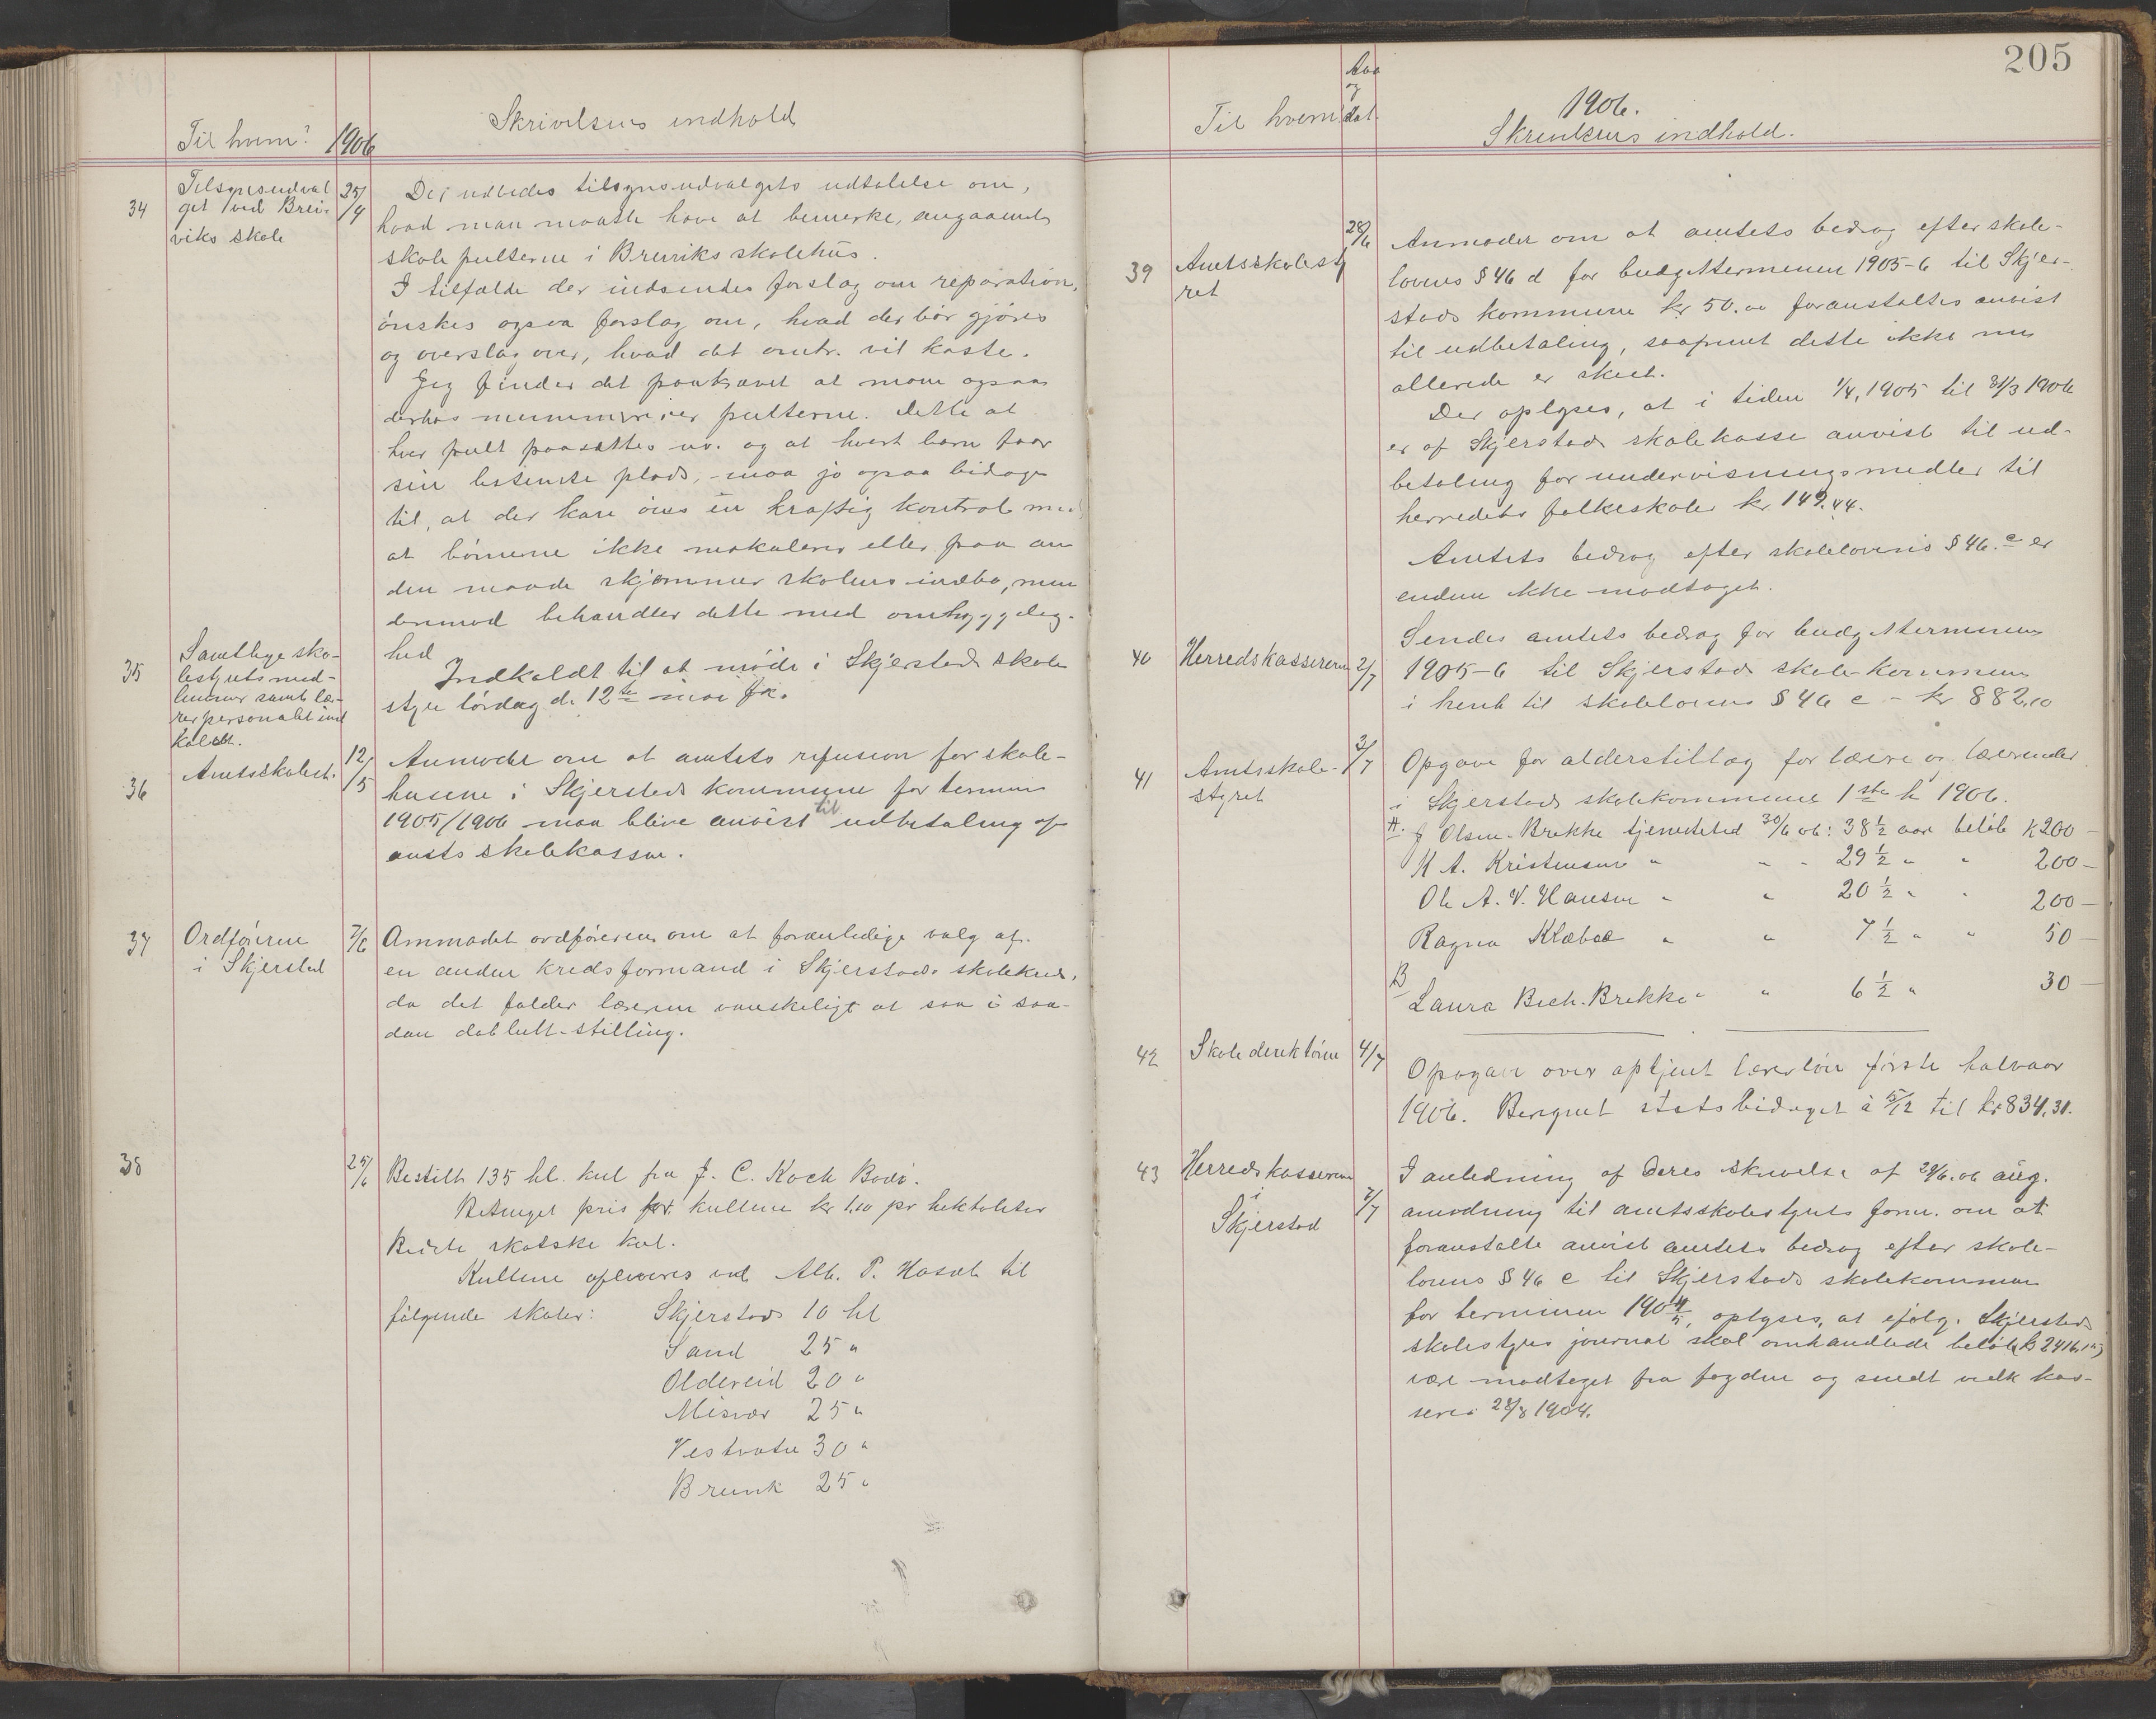 Til hvem? 1906 Skrivelsens indhold
34 Tilsynsudval 25/4 Der udbedes tilsynsudvalgets udtalelse om,
get ved Brei- hvad man maatte have at bemerke, angaaende
viks skole skolepulterne i Breiviks skolehus.
I tilfælde der indsendes forslag om reparation,
ønskes ogsaa forslag om, hvad der bør gjøres
og overslag over, hvad det omtr. vil koste.
Jeg finder det paakrævet at man ogsaa
derhos nummererer pulterne. Dette at
hver pult paasættes nr. og at hvert barn faar
sin bestemte plads, maa jo ogsaa bidrage
til, at der kan øves en kraftig kontrol med
at børnene ikke makulerer eller paa an
den maade skjæmmer skolens indbo, men
derimod behandler dette med omhyggelig-
hed
35 Samtlige sko-
lestyrets med-
lemmer samt læ-
rerpersonalet ind
kaldt.
Indkaldt til at møde i Skjerstad skole
styre lørdag d. 12te mai fk.
36 Amtsskolest. 12/5 Anmodet om at amtets refusion for skole-
husene i Skjerstad kommune for termin
1905/1906 maa blive anvist til udbetaling af
amts skolekassen.
37 Ordføreren 7/6 Anmodet ordføreren om at foranledige valg af
i Skjerstad en anden kredsformand i Skjerstads skolekreds,
da det falder læreren vanskeligt at staa i saa-
dan dobbelt-stilling.
38 25/6 Bestilt 135 hl. kul fra J. C. Koch Bodø.
Betinget pris for kullene kr 1.10 pr hektoliter
Bedste skotske kul.
Kullene opleveres ved Alb. P. Hasvk til
følgende skoler: Skjerstad 10 hl
Sand 25 "
Oldereid 20 "
Misvær 25 "
Vestvatn 30 "
Breivik 25 "
205
Til hvem Aar og dat. 1906.
Skrivelsens indhold.
39 Amtsskolesty 28/6 Anmoder om at amtets bedrag efter skole-
ret lovens § 46 d for budgettterminen 1905-6 til Skjer-
stads kommune kr 50.00 foranstaltes anvist
til udbetaling, saafremt dette ikke nu
allerede er skeet.
Der oplyses, at i tiden 1/4, 1905 til 31/3 1906
er af Skjerstads skolekasse anvist til ud-
betaling for undervisningsmidler til
herredets folkeskoler kr. 149.44.
Amtets bedrag efter skolelovens § 46. c er
endnu ikke modtaget.
40 Herredskassereren 2/7 Sendes amtets bedrag for budgetterminen
1905-6 til Skjerstads skole-kommune
i henh til skolelovens § 46 c - kr 882,10
41 Amtsskole- 3/7 Opgave for alderstillæg for lærere og lærerinder
styret i Skjerstads skolekommune 1ste h 1906.
A. J Olsen-Brekke tjenestetid 30/6 06: 38 1/2 aar beløb k 200 -
K A. Kristensen " - - 29 1/2 " " 200 -
Ole A. V. Hansen " " 20 1/2 " " 200 -
Ragna Klæboe " " 7 1/2 " " 50 -
B Laura Bech-Brekke " " 6 1/2 " 30 -
42 Skoledirektøren 4/7 Opgave over optjent lærerløn første halvaar
1906. Beregnet statsbidraget à 5/12 til kr 834,31.
43 Herredskassereren I anledning af Deres skrivelse af 29/6.06 ang.
i Skjerstad 7/7 anmodning til amtsskolestyrets form. om at
foranstalte anvist amtets bedrag efter skole-
lovens § 46 c til Skjerstads skolekommune
for terminen 1904/5, oplyses, at ifølg. Skjerstads
skolestyres journal skal omhandlede beløb (kr 2416.10)
være modtaget fra fogden og sendt vedk kas-
serer 28/8 1904.